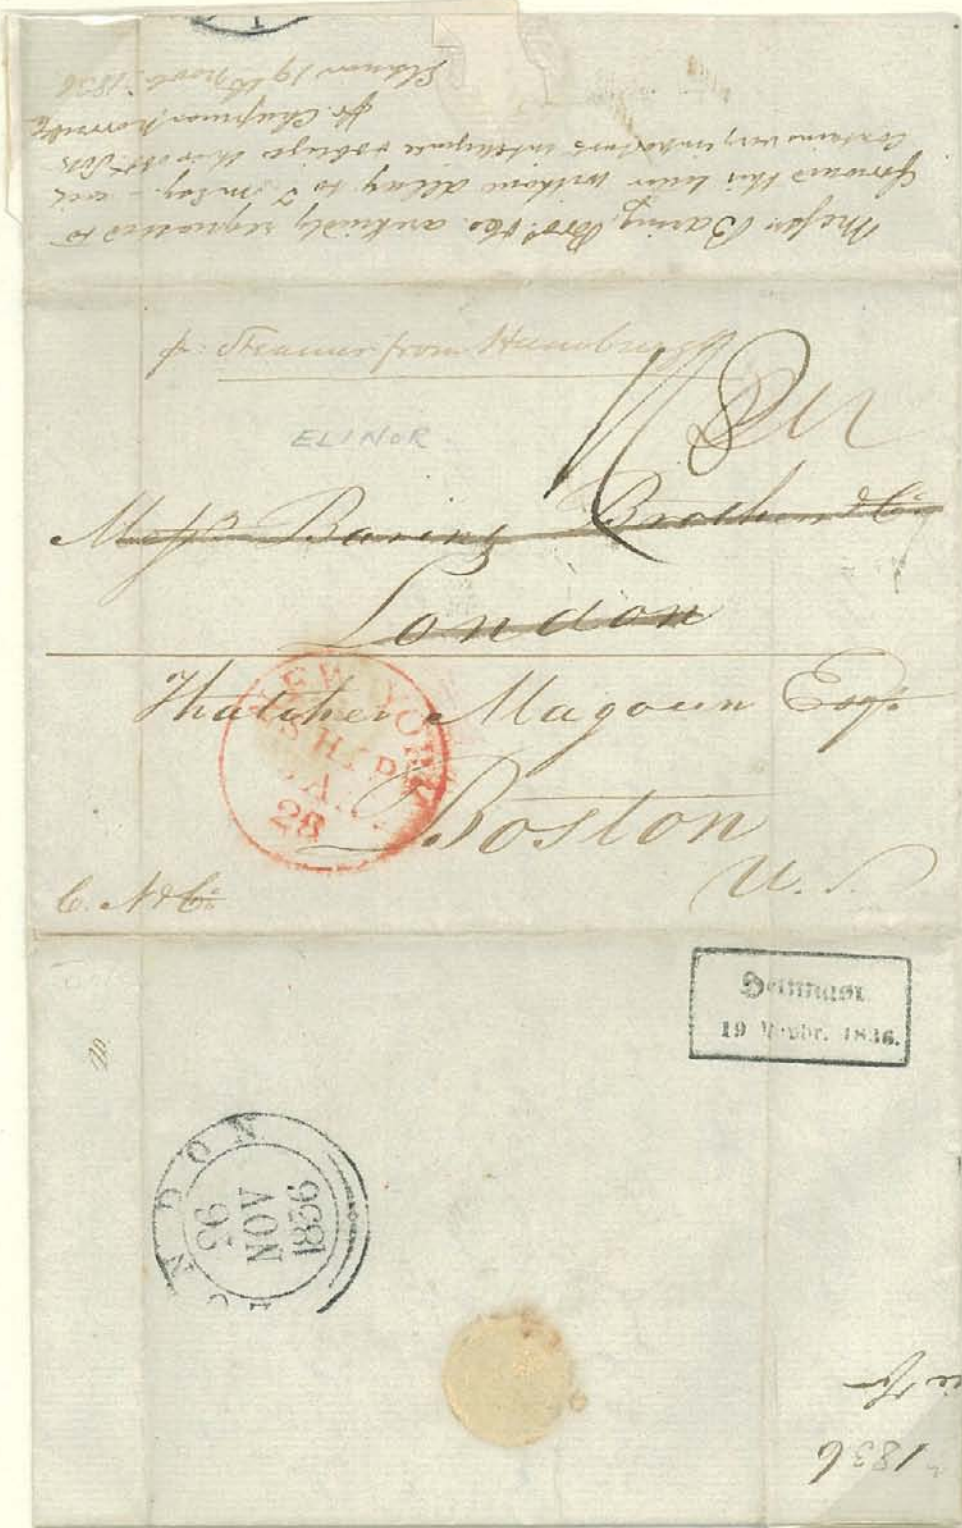 Messrs Baring Bros. & Co. are kindly requested to
forward this letter without delay to T. M. Esq. – 
contains very important intelligence & oblige their obt. Svts
pr. Chapman
Elsinore 19th Novb. 1836
p. Steamer from Hamburgh
ELINOR
Messrs Baring Brothers & Co:
London
Thatcher Magoun Esqr.
Boston
U.S.
NEW YORK
SHIP
JAN.
28
C. N & Co:
19 Novbr. 1836.
LONDON
26
NOV
1836
1836